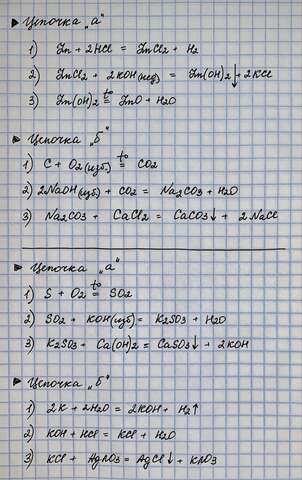 ▶ Цепочка "а"
1) Zn + 2HCl = ZnCl2 + H2
2) ZnCl2 + 2KOH (нед) = Zn(OH)2↓ + 2KCl
3) Zn(OH)2 t°= ZnO + H2O
▶ Цепочка "б"
1) C + O2 (изб.) t°= CO2
2) 2NaOH (изб) + CO2 = Na2CO3 + H2O
3) Na2CO3 + CaCl2 = CaCO3↓ + 2NaCl
▶ Цепочка "а"
1) S + O2 t°= SO2
2) SO2 + KOH (изб) = K2SO3 + H2O
3) K2SO3 + Ca(OH)2 = CaSO3↓ + 2KOH
▶ Цепочка "б"
1) 2K + 2H2O = 2KOH + H2↑
2) KOH + HCl = KCl + H2O
3) KCl + AgNO3 = AgCl↓ + KNO3